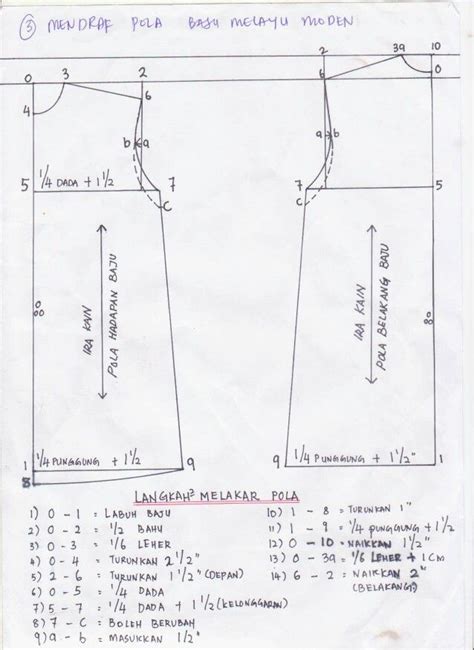 ③ MENDRAF POLA BAJU MELAYU MODEN
2 3a 10
0 3 2 6 0
4 6
b a a b
5 1/4 DADA + 1 1/2 7 7 5
C C
IRA KAIN
POLA HADAPAN BAJU
IRA KAIN
POLA BELAKANG BAJU
1/4 PUNGGUNG + 1 1/2 1/4 PUNGGUNG + 1 1/2"
1 9 9 1
8
LANGKAH² MELAKAR POLA
1) 0 - 1 = LABUH BAJU
2) 0 - 2 = 1/2 BAHU
3) 0 - 3 = 1/6 LEHER
4) 0 - 4 = TURUNKAN 2 1/2"
5) 2 - 6 = TURUNKAN 1 1/2" (DEPAN)
6) 0 - 5 = 1/4 DADA
7) 5 - 7 = 1/4 DADA + 1 1/2 (KELONGGARAN)
8) 7 - C = BOLEH BERUBAH
9) a - b = MASUKKAN 1/2"
10) 1 - 8 = TURUNKAN 1"
11) 1 - 9 = 1/4 PUNGGUNG + 1 1/2
12) 0 - 10 = NAIKKAN 1 1/2"
13) 0 - 3a = 1/6 LEHER + 1 CM
14) 6 - 2 = NAIKKAN 2"
(BELAKANG)